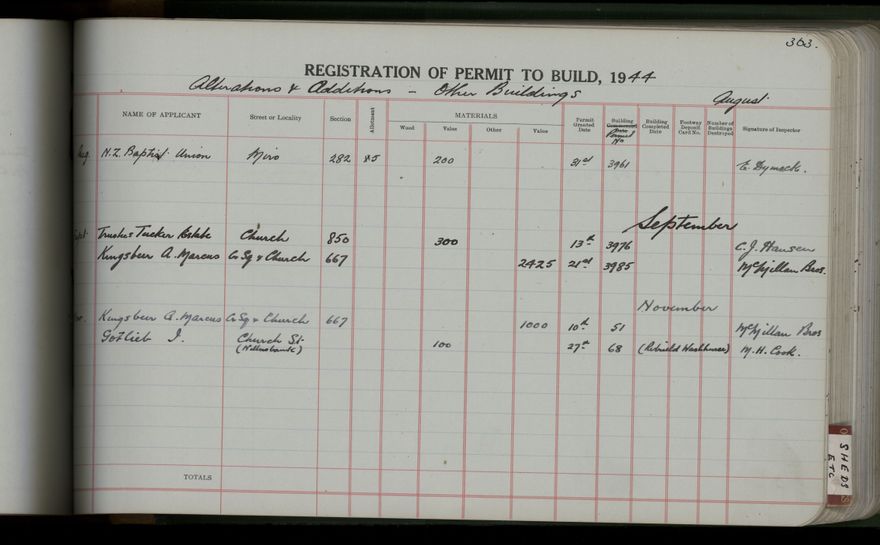 363.
REGISTRATION OF PERMIT TO BUILD, 1944
Alterations & Additions - Other Buildings
August
NAME OF APPLICANT Street or Locality Section Allotment MATERIALS Wood Value Other Value Permit Granted Date Building Commenced Date Permit No Building Completed Date Footway Deposit Card No. Number of Buildings Destroyed Signature of Inspector
Aug. N.Z. Baptist Union Miro 282 45 200 31st 3961 E. Dymock.
September
Sept. Trustees Tucker Estate Church 850 300 13th 3976 C. J. Hansen
Kingsbeer A. Marcus Co Sq & Church 667 2425 21st 3985 McMillan Bros.
November
Nov. Kingsbeer A. Marcus Co Sq & Church 667 1000 10th 51 McMillan Bros
Gotlieb I. Church St. 100 27th 68 (Rebuild Washhouse) M. H. Cook.
TOTALS
SHEDS
ETC